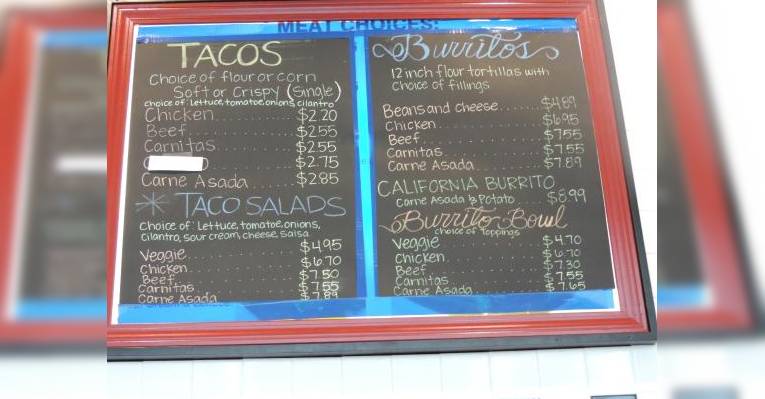 MEAT CHOICES:
TACOS
Choice of flour or corn
Soft or Crispy (Single)
choice of: Lettuce, tomatoe, onions, cilantro
Chicken $2.20
Beef $2.55
Carnitas $2.55
$2.75
Carne Asada $2.85
TACO SALADS
Choice of: Lettuce, tomatoe, onions,
cilantro, sour cream, cheese, salsa
Veggie $4.95
Chicken $6.70
Beef $7.50
Carnitas $7.55
Carne Asada $7.89
Burritos
12 inch flour tortillas with
choice of fillings
Beans and cheese $4.89
Chicken $6.95
Beef $7.55
Carnitas $7.55
Carne Asada $7.89
CALIFORNIA BURRITO
Carne Asada & Potato $8.99
Burrito Bowl
choice of toppings
Veggie $4.70
Chicken $6.70
Beef $7.30
Carnitas $7.55
Carne Asada $7.65